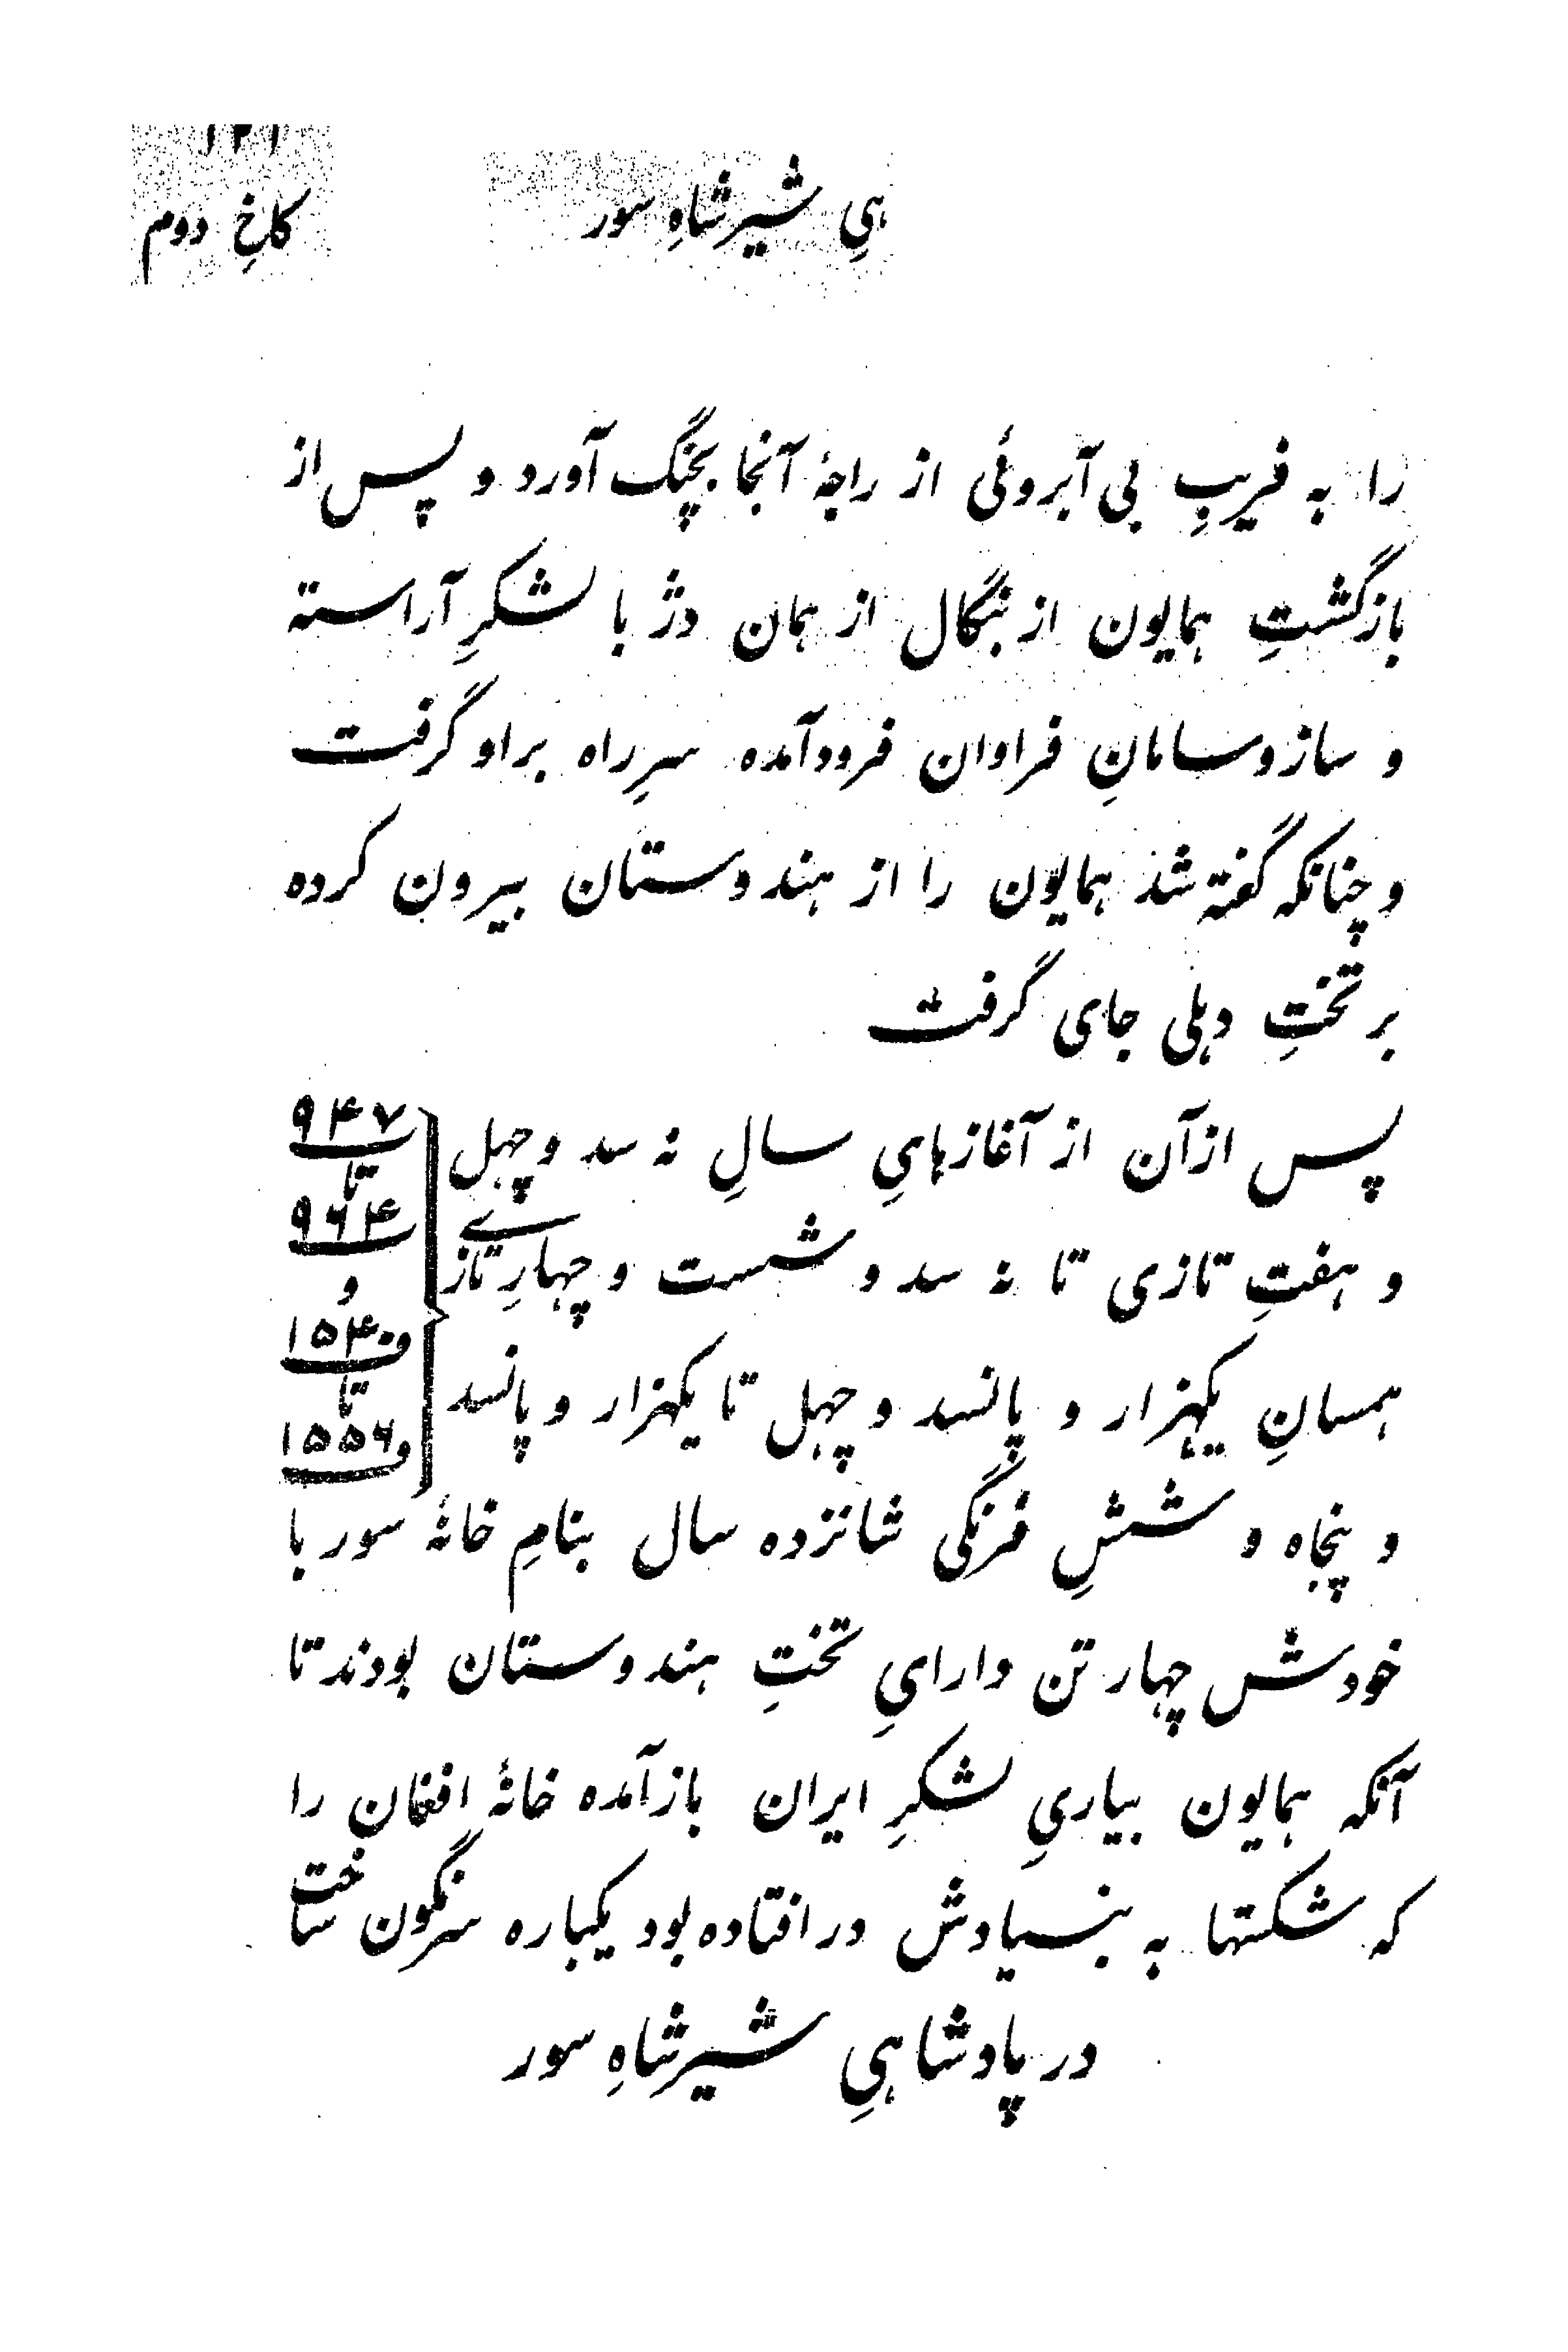 ۱۲۱
هیِ شیرشاهِ سور
کاخِ دوم
را به فریبِ بی آبروئی از راجۀ آنجا بچنگ آورد و پس از
بازگشتِ همایون از بنگال از همان دژ با لشکرِ آراسته
و ساز و سامانِ فراوان فرودآمده سرِ راه براو گرفت
و چنانکه گفته شد همایون را از هندوستان بیرون کرده
بر تختِ دهلی جای گرفت
پس ازآن از آغازهایِ سالِ نه سد و چهل
و هفتِ تازی تا نه سد و شست و چهارِ تازی
همسانِ یکهزار و پانسد و چهل تا یکهزار و پانسد
۹۴۷
تا
۹۶۴
و
۱۵۴۰ف
تا
۱۵۵۶ف
و پنجاه و ششِ فرنگی شانزده سال بنامِ خانۀ سور با
خودش چهار تن دارایِ تختِ هندوستان بودند تا
آنکه همایون بیاریِ لشکرِ ایران بازآمده خانۀ افغان را
که شکستها به بنیادش درافتاده بود یکباره سرنگون ساخت
در پادشاهیِ شیرشاهِ سور